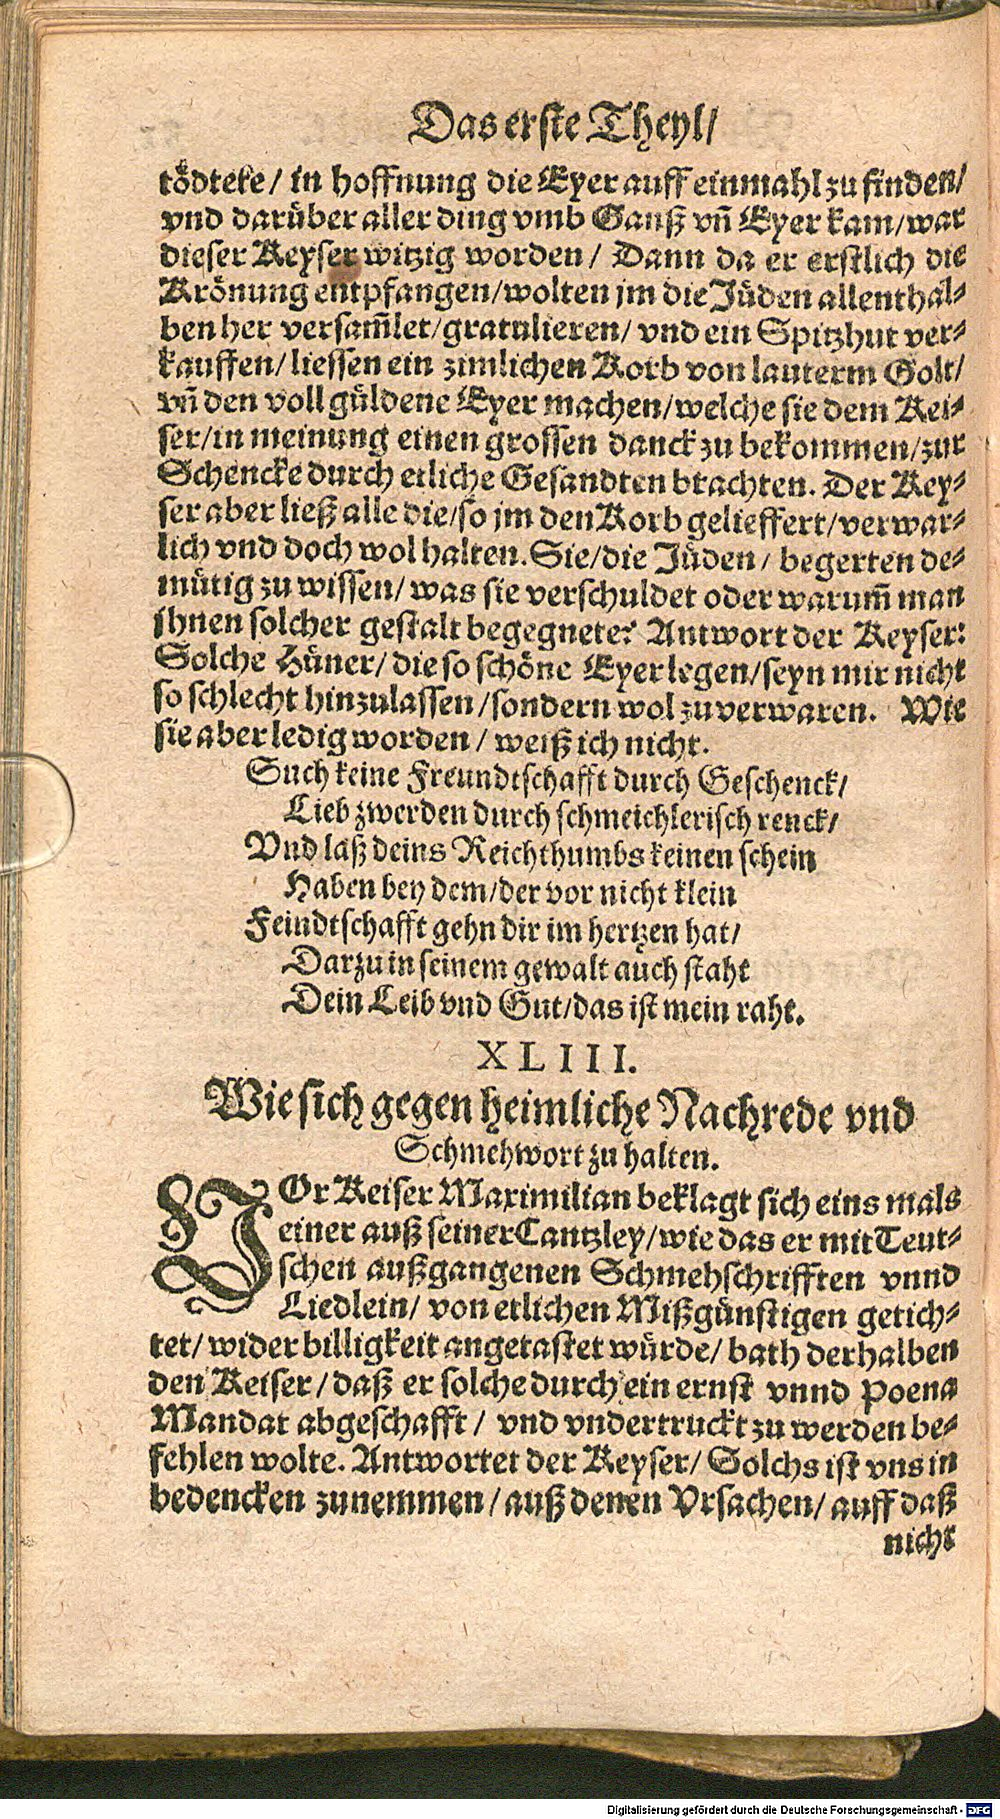 Das erste Theyl/
tödtete/ in hoffnung die Eyer auff einmahl zu finden/
vnd darüber aller ding vmb Gauß vñ Eyer kam/ war
dieser Keyser witzig worden/ Dann da er erstlich die
Krönung entpfangen/ wolten jm die Jüden allenthal⸗
ben her versam̃let/ gratulieren/ vnd ein Spitzhut ver⸗
kauffen/ liessen ein zimlichen Korb von lauterm Golt/
vñ den voll güldene Eyer machen/ welche sie dem Kei⸗
ser/ in meinung einen grossen danck zu bekommen/ zur
Schencke durch etliche Gesandten brachten. Der Key⸗
ser aber ließ alle die/ so jm den Korb gelieffert/ verwar⸗
lich vnd doch wol halten. Sie/ die Jüden/ begerten de⸗
mütig zu wissen/ was sie verschuldet oder warum̃ man
ihnen solcher gestalt begegnete? Antwort der Keyser:
Solche Hüner/ die so schöne Eyer legen/ seyn mir nicht
so schlecht hinzulassen/ sondern wol zuverwaren. Wie
sie aber ledig worden/ weiß ich nicht.
Such keine Freundtschafft durch Geschenck/
Lieb zwerden durch schmeichlerisch renck/
Vnd laß deins Reichthumbs keinen schein
Haben bey dem/ der vor nicht klein
Feindtschafft gehn dir im hertzen hat/
Darzu in seinem gewalt auch staht
Dein Leib vnd Gut/ das ist mein raht.
XLIII.
Wie sich gegen heimliche Nachrede vnd
Schmehwort zu halten.
VOr Keiser Maximilian beklagt sich eins mals
einer auß seiner Cantzley/ wie das er mit Teut⸗
schen außgangenen Schmehschrifften vnnd
Liedlein/ von etlichen Mißgünstigen getich⸗
tet/ wider billigkeit angetastet würde/ bath derhalben
den Keiser/ daß er solche durch ein ernst vnnd Poena
Mandat abgeschafft/ vnd vndertruckt zu werden be⸗
fehlen wolte. Antwortet der Keyser/ Solchs ist vns in
bedencken zunemmen/ auß denen Vrsachen/ auff daß
nicht
Digitalisierung gefördert durch die Deutsche Forschungsgemeinschaft - DFG